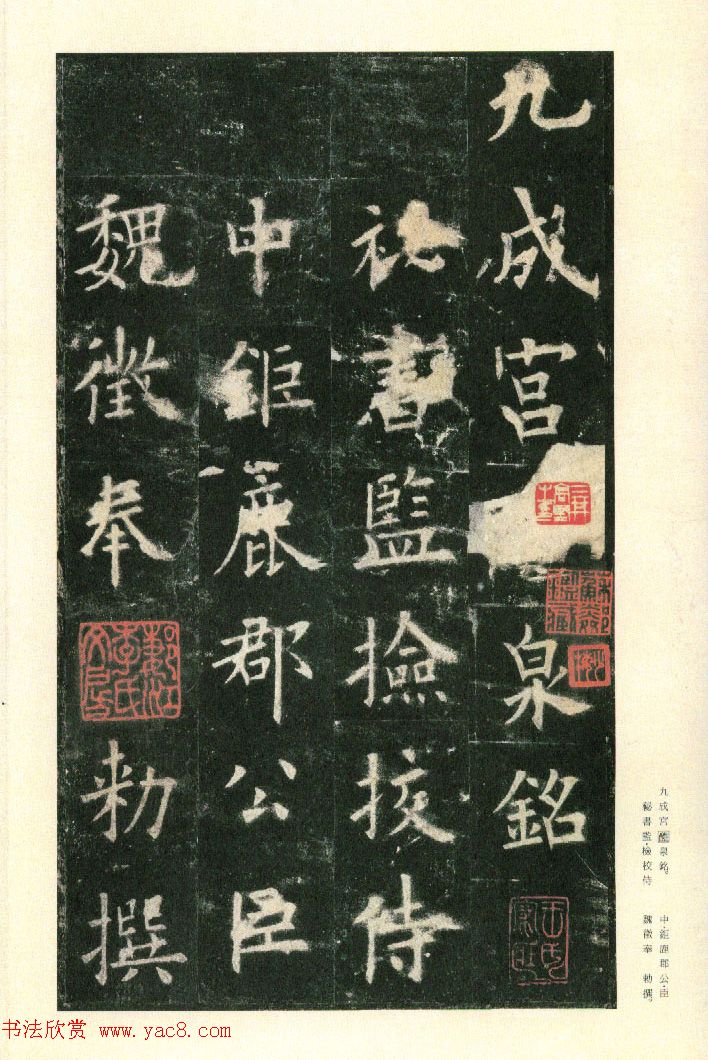 九成宮泉銘
祕書監撿挍侍
中鉅鹿郡公臣
魏徵奉
勅撰
九成宮醴泉銘。
秘書監·檢校侍
中·鉅鹿郡公·臣
魏徵奉 勅撰。
书法欣赏 www.yac8.com